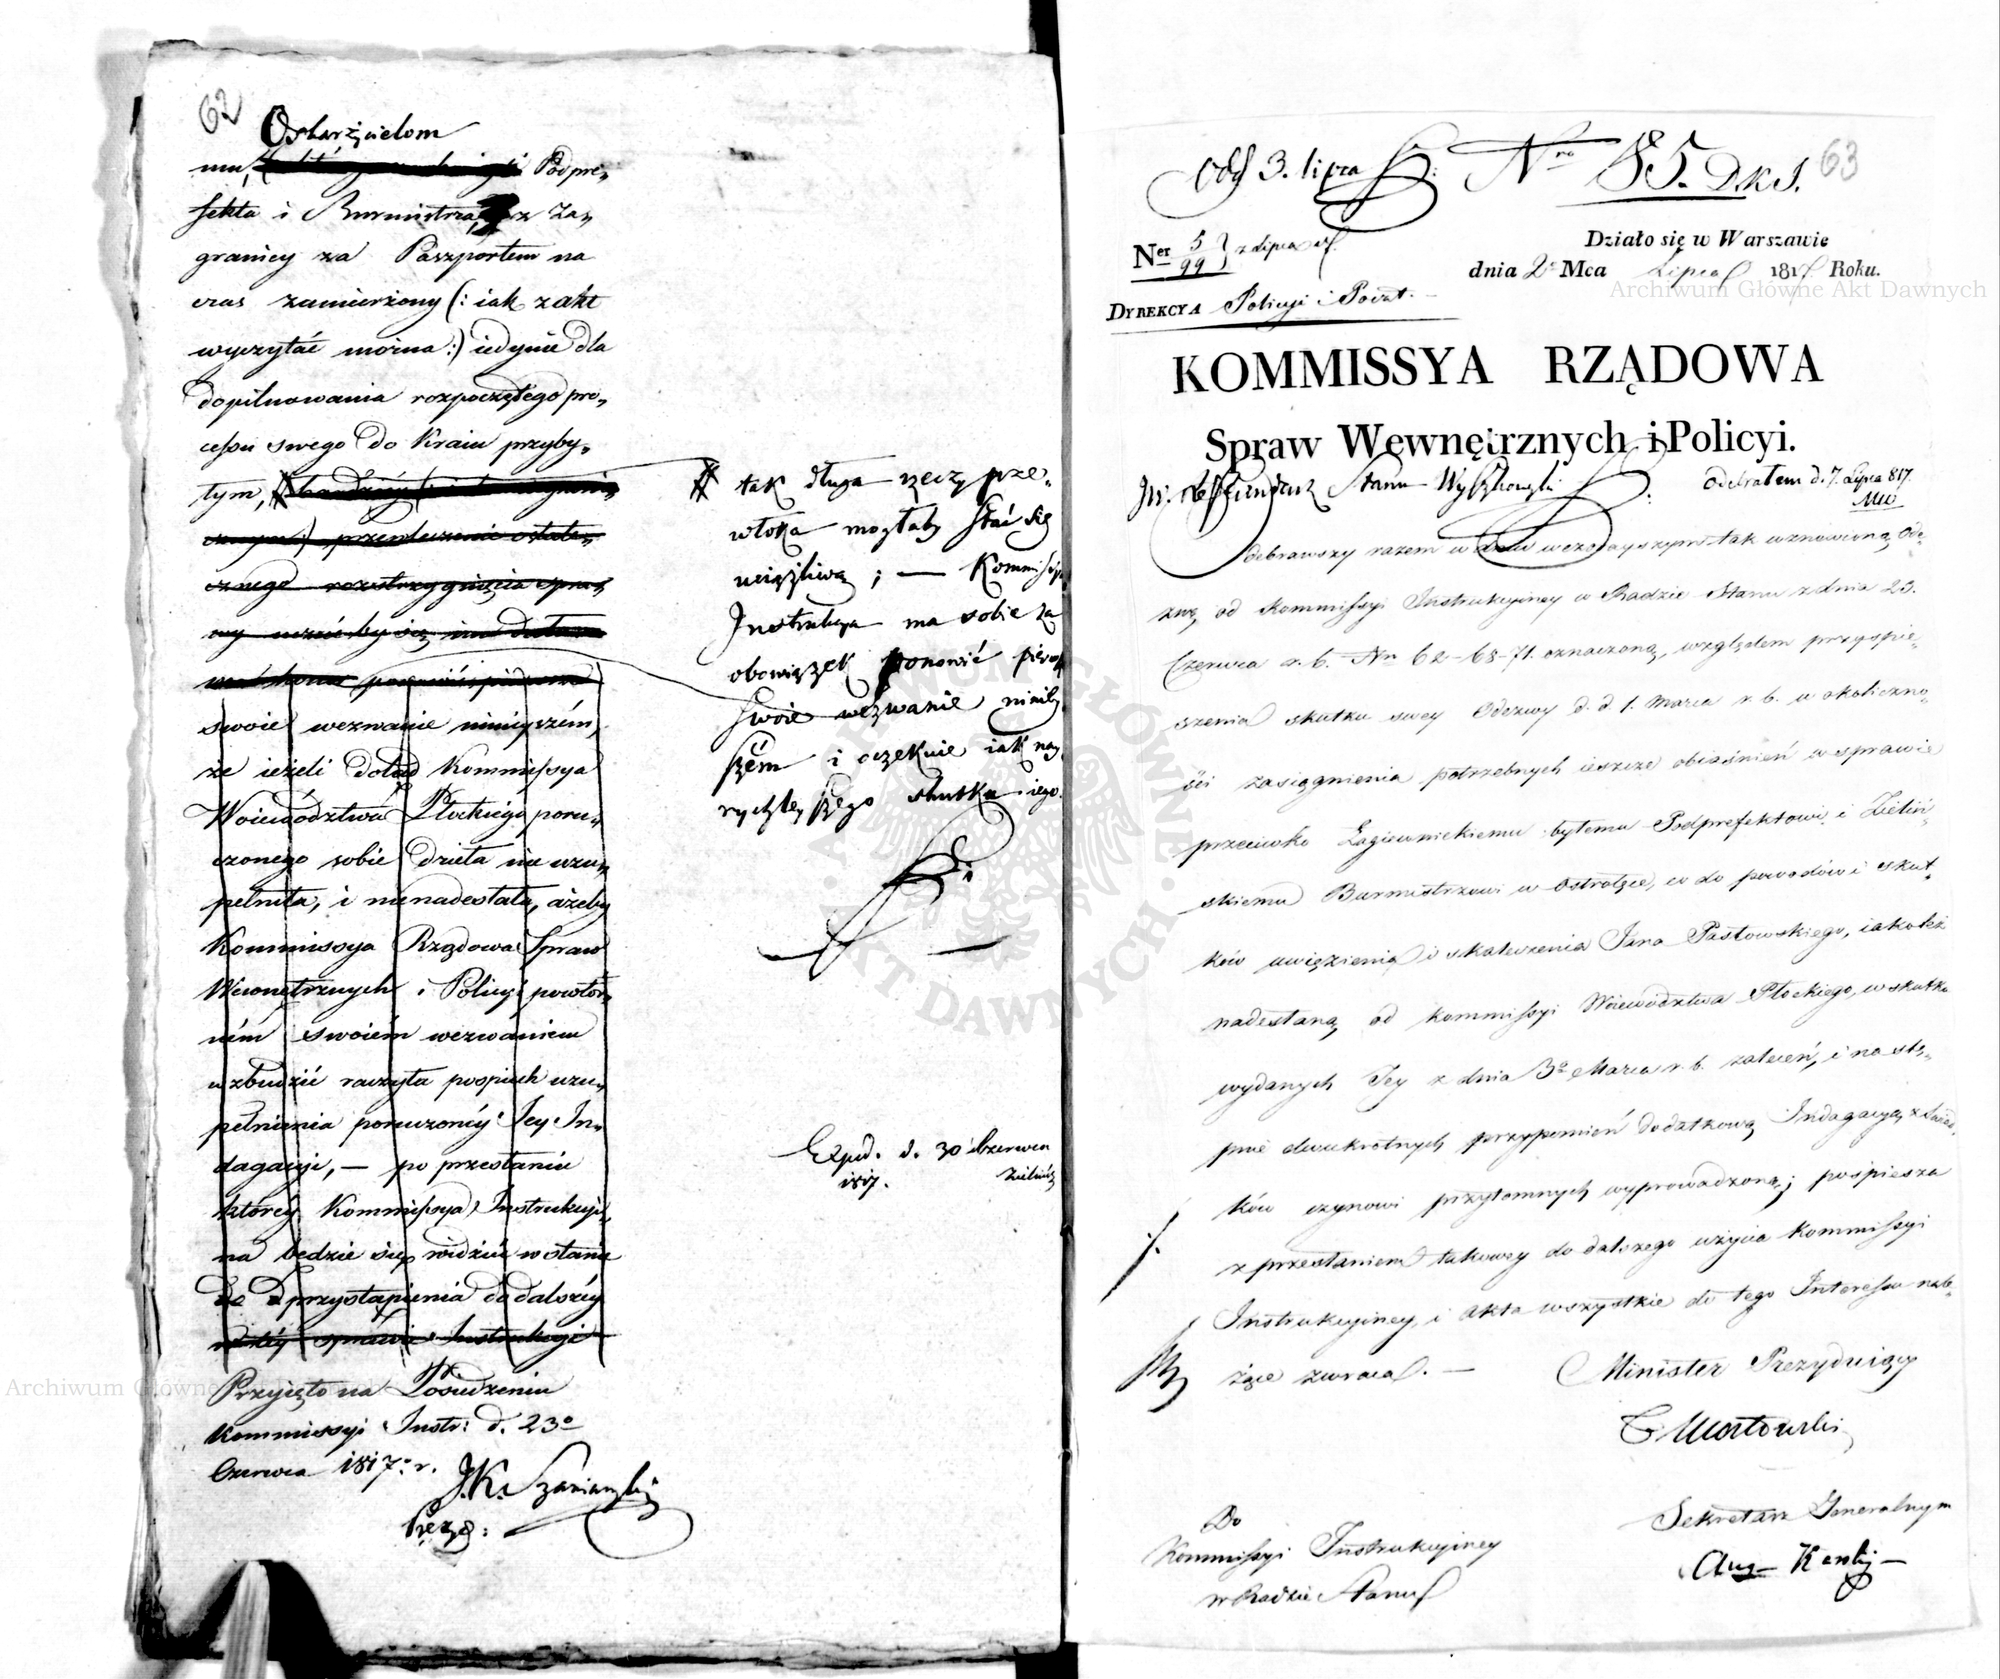 62
Oskarżycielom
mu, Podpre„
fekta i Burmistrza, z za„
granicy za Paszportem na
czas zamierzony (: iak z akt
wyczytać można :) iedynie dla
dopilnowania rozpoczętego pro„
cessu swego do Kraiu przyby„
tym,
przewleczenie ostate„
cznego rozstrzygnięcia spra„
wy
swoie wezwanie ninieyszém,
że ieżeli dotąd Kommissya
Woiewództwa Płockiego poru„
czonego sobie dzieła nie uzu„
pełniła, i nie nadesłała, ażeby
Kommissya Rządowa Spraw
Wewnętrznych i Policyi powtór„
ném swoiém wezwaniem
wzbudzić raczyła pospiech uzu„
pełnienia poruczonéy Jey In„
dagacyi, — po przesłaniu
któréy Kommissya Instrukcyi„
na będzie się widzieć w stanie
do przystąpienia do dalszéy
w téy sprawie Instrukcyi
Przyięto na Posiedzeniu
Kommissyi Instr: d. 23º
Czerwca 1817º r.
J. K. Szaniawski
Prezyd:
tak długa rzeczy prze„
włoka mogłaby stać się
uciążliwą ; — Kommissya
Instrukcyi ma sobie za
obowiązek ponowić pierwsze
swoie wezwanie niniey
szém i oczekuie iak nay
rychleyszego skutku iego.
Exped. d. 30 Czerwca
1817.
63
Odd 3. lipca
Nro 85. D.K.I.
Ner 5/99 z Lipca
Działo się w Warszawie
dnia 2º Mca Lipca 1817 Roku.
DYREKCYA Policyi i Poczt. —
KOMMISSYA RZĄDOWA
Spraw Wewnętrznych i Policyi.
JW. Referendarz Stanu Wyczechowski
Odebrałem d. 7. Lipca 817.
Odebrawszy razem w dniu wczorayszym tak wznowioną Ode„
zwę od Kommissyi Instrukcyiney w Radzie Stanu z dnia 23.
Czerwca r. b. Nro 62–63–71. oznaczoną, względem przyspie„
szenia skutku swey Odezwy d. d. 1. Marca r. b. w okoliczno„
ści zasiągnienia potrzebnych ieszcze obiaśnień w sprawie
przeciwko Łagiewnickiemu bytemu Podprefektowi i Zieliń„
skiemu Burmistrzowi w Ostrołęce, co do powodów i skut„
ków uwięzienia i skaleczenia Jana Pastowskiego, iakoteż
nadesłaną od Kommissyi Woiewództwa Płockiego, w skutku
wydanych Jey z dnia 3º Marca r. b. zaleceń, i nastę„
pnie dwukrotnych przypomnień dodatkową Indagacyą z świad„
ków czynowi przytomnych wyprowadzoną; pośpiesza
z przesłaniem takowey do dalszego użycia Kommissyi
Instrukcyiney, i akta wszystkie do tego Interessu nale„
żące zwraca. —
Minister Prezyduiący
T Mostowski
Sekretarz Generalny
Aug. Karski
Do
Kommissyi Instrukcyiney
w Radzie Stanu
Archiwum Główne Akt Dawnych
Archiwum Główne
ARCHIWUM GŁÓWNE · AKT DAWNYCH ·